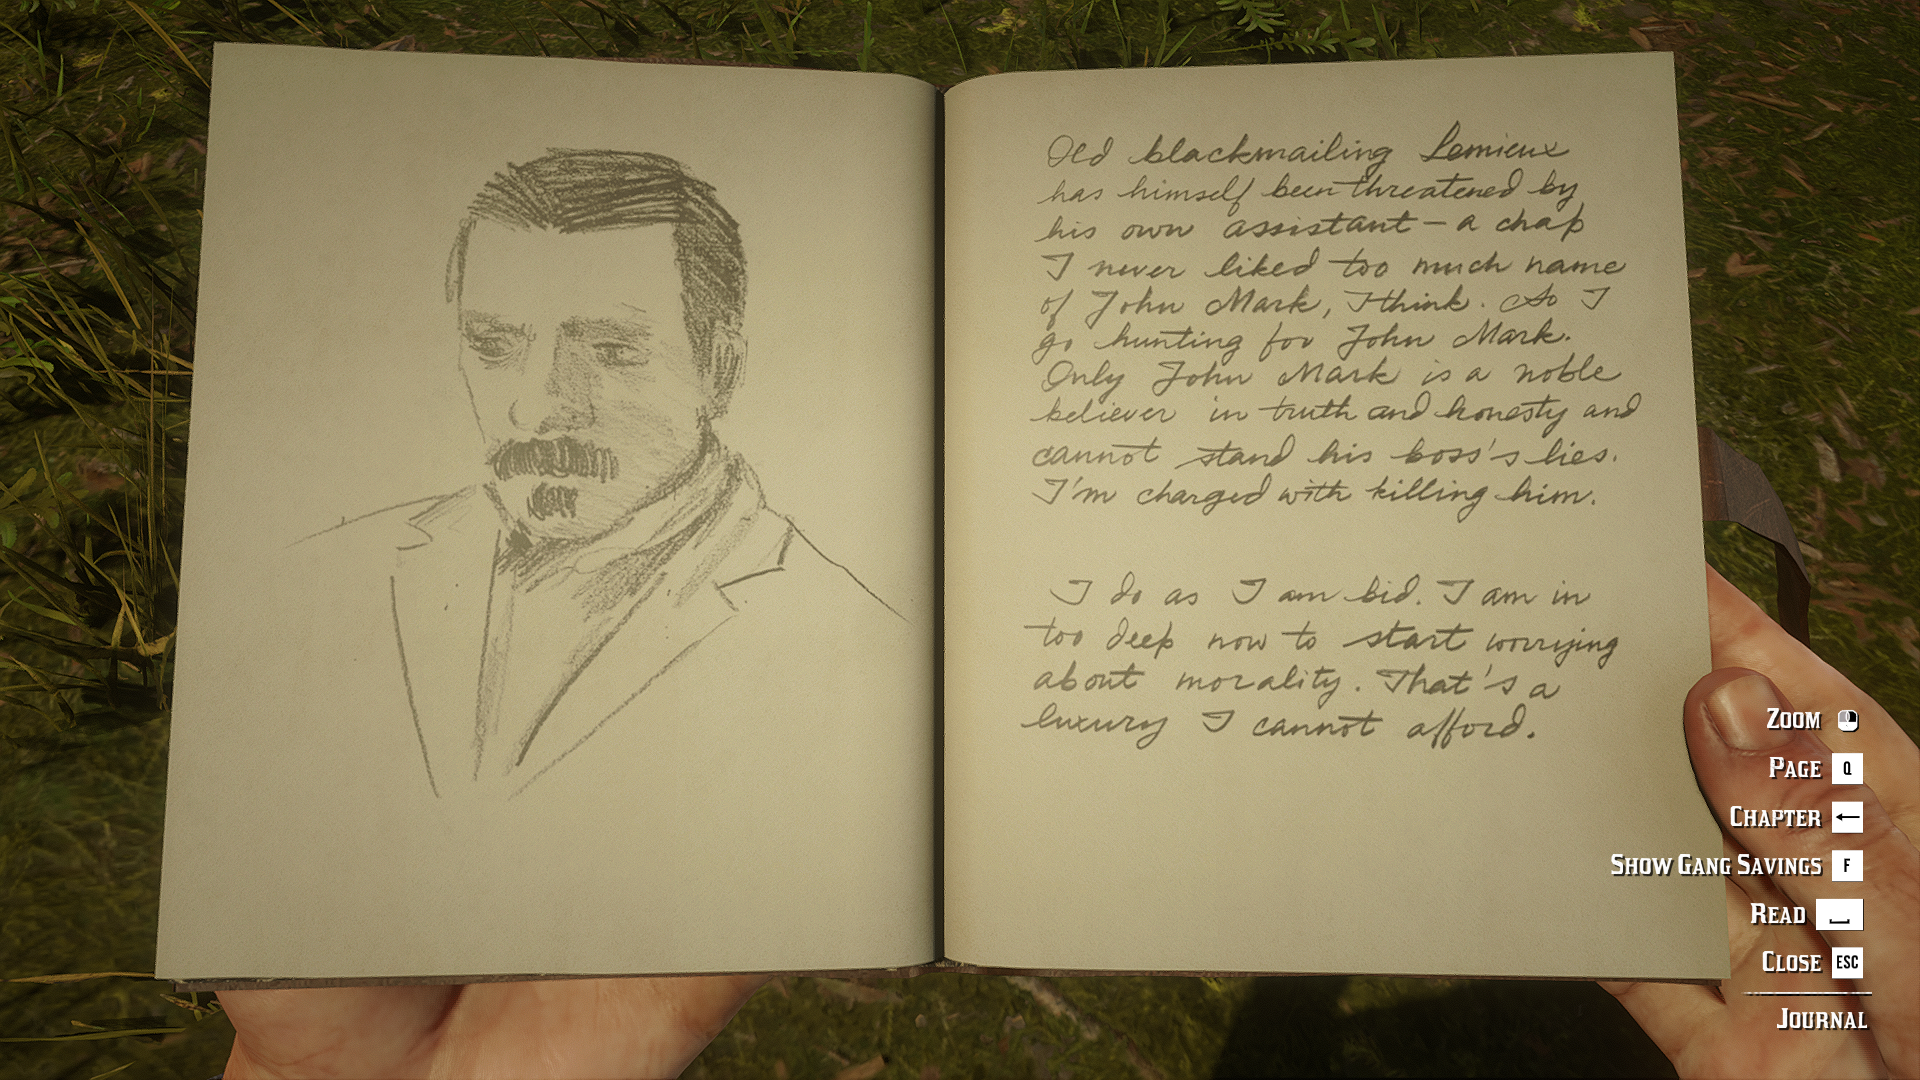 Old blackmailing Lemieux
has himself been threatened by
his own assistant — a chap
I never liked too much name
of John Mark, I think. So I
go hunting for John Mark.
Only John Mark is a noble
believer in truth and honesty and
cannot stand his boss's lies.
I'm charged with killing him.
I do as I am bid. I am in
too deep now to start worrying
about morality. That's a
luxury I cannot afford.
ZOOM
PAGE Q
CHAPTER ←
SHOW GANG SAVINGS F
READ
CLOSE ESC
JOURNAL